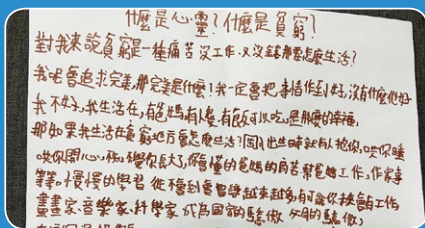 什麼是心靈?什麼是貧窮?
對我來說貧窮是一種痛苦沒工作,又沒錢那要怎麼生活?
我呢會追求完美,那完美是什麼!我一定會把,事情作到好,沒有什麼他好
我不好,我生活在,有爸媽有人愛,有飯可以吃,是那麼的幸福,
那如果我生活在貧窮地方會怎麼生活?剛出生時就有人抱你,哄你睡
哄你開心,慢慢變你長大了,你會懂的爸媽的辛苦幫爸媽工作,作家事
等等。慢慢的學習 從種到會智慧越來越多有可當你找會有工作
畫畫家、音樂家、科學家 成為國語的驕傲